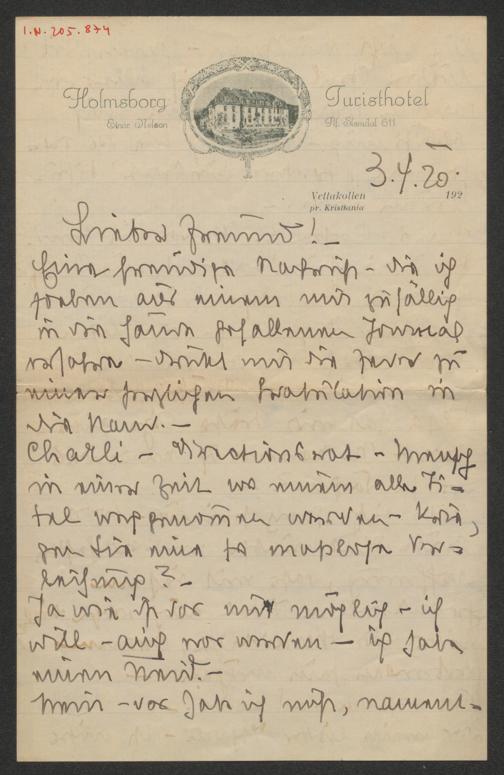 I.N. 205.874
Holmsborg Turisthotel
Einar Nelson Tlf. Slemdal 611
3.4.20.
Vettakollen 192
pr. Kristiania
Lieber Freund!
Eine freudige Nachricht – die ich
soeben aus einem mir zufällig
in die Hände gefallenen Journal
erfahre – drückt mir die Feder zu
einer herzlichen Gratulation in
die Hand. –
Charli – Directionsrat – Mensch
in einer Zeit wo einem alle Ti-
tel weggenommen werden –
gen Sie eine so maßlose Ver-
leihung? –
Ja wie ist das nur möglich – ich
will – auch was werden – ich habe
einen Neid. –
Nein – das hab ich nicht, nament-